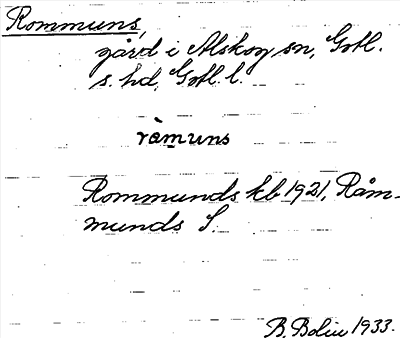 Rommuns,
gård i Alskog sn, Gotl.
s. hd, Gotl. l.
råmuns
Rommunds kb 1921, Råm-
munds S.
B. Bolin 1933.